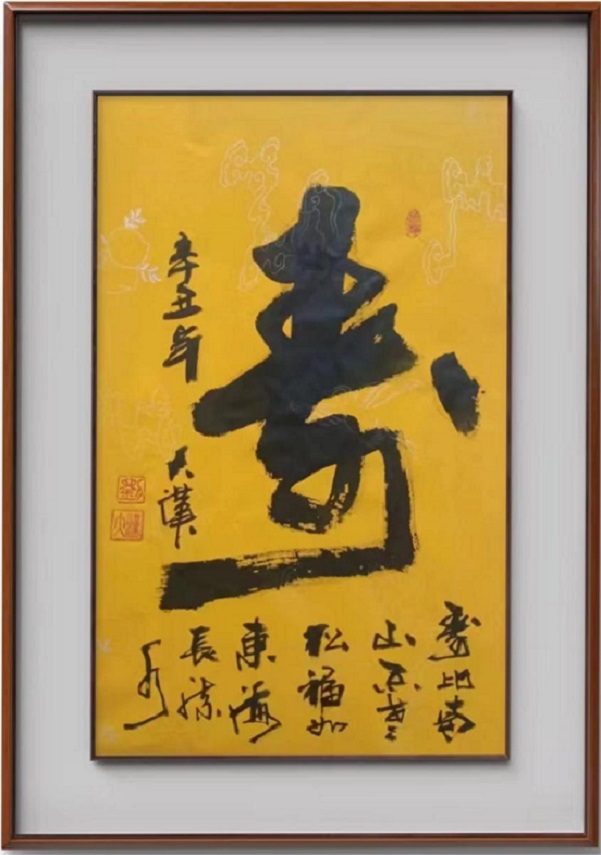 寿
壽比南
山不老
松福如
東海
長流
水
辛丑年
大漢